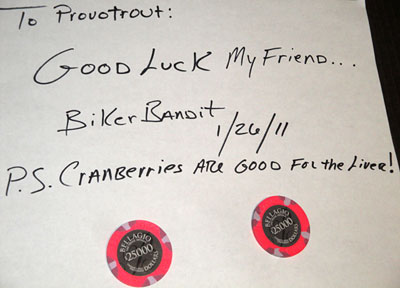 To Provotrout:
Good Luck My Friend...
Biker Bandit
1/26/11
P.S. Cranberries Are Good For the Liver!
BELLAGIO
25000
DOLLARS
BELLAGIO
25000
DOLLARS